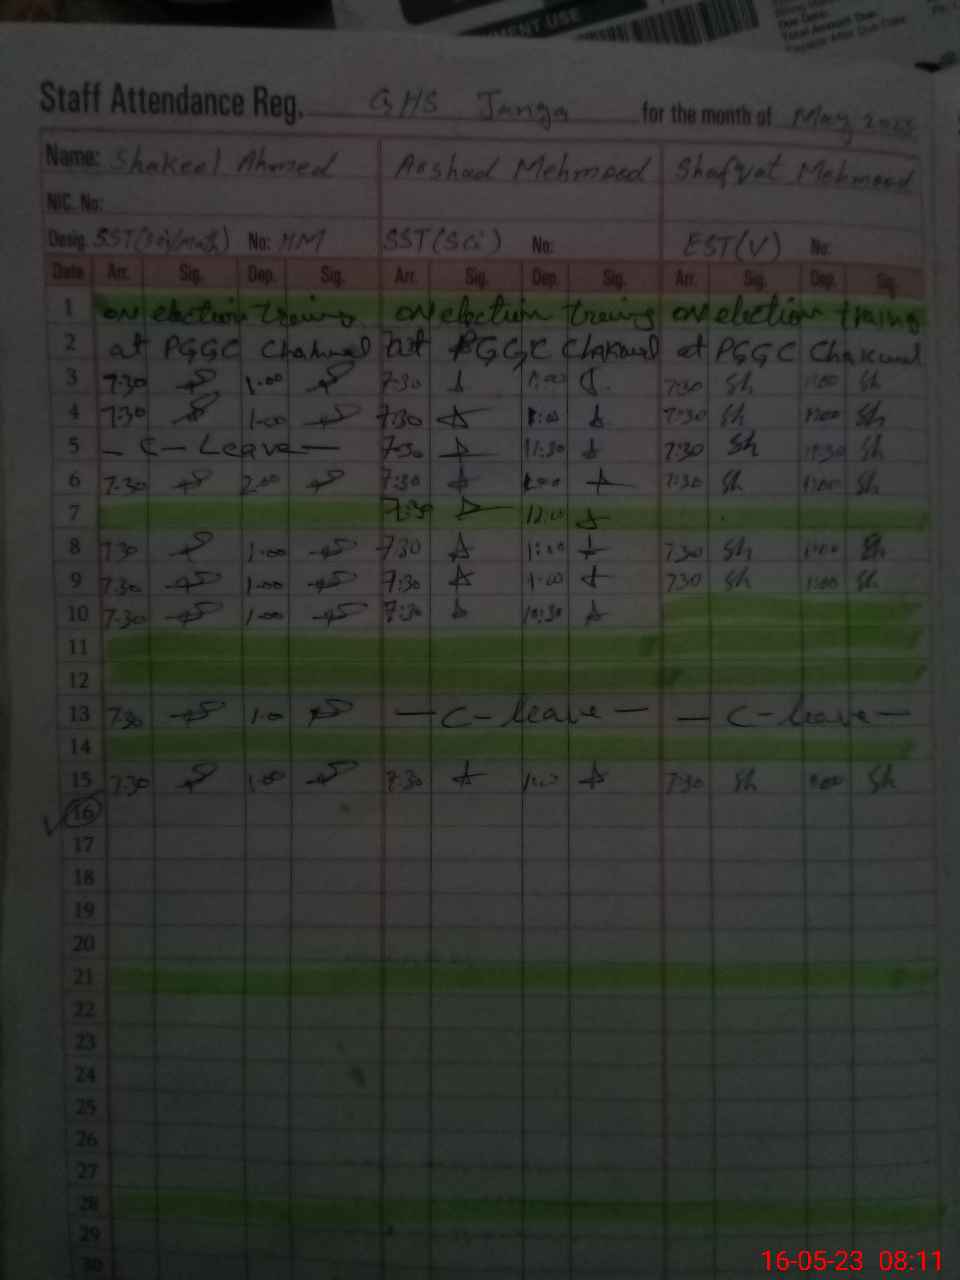 MENT USE
Due Date:
Total Amount Due:
Payable After Due Date:
Staff Attendance Reg. GHS Janga for the month of May 2023
Name: Shakeel Ahmed Arshad Mehmood Shafqat Mehmood
NIC. No:
Desig. SST(Sci/Math) No: HM SST(Sci) No: EST(V) No:
Date Arr. Sig. Dep. Sig. Arr. Sig. Dep. Sig. Arr. Sig. Dep. Sig.
1 on election traing on election traing on election traing
2 at PGGC Chakwal at PGGC Chakwal at PGGC Chakwal
3 7:30 1:00 7:30 1:00 7:30 Sh 1:00 Sh
4 7:30 1:00 7:30 1:00 7:30 Sh 1:00 Sh
5 - C - Leave - 7:30 11:30 7:30 Sh 11:30 Sh
6 7:30 2:00 7:30 7:30 Sh 1:00 Sh
7 7:30 12:0
8 7:30 1:00 7:30 1:00 7:30 Sh 1:00 Sh
9 7:30 1:00 7:30 1:00 7:30 Sh 1:00 Sh
10 7:30 1:00 7:30 10:30
11
12
13 7:30 1:0 - C - leave - - C - leave -
14
15 7:30 1:00 7:30 1:00 7:30 Sh 1:00 Sh
16
17
18
19
20
21
22
23
24
25
26
27
28
29
30
16-05-23 08:11